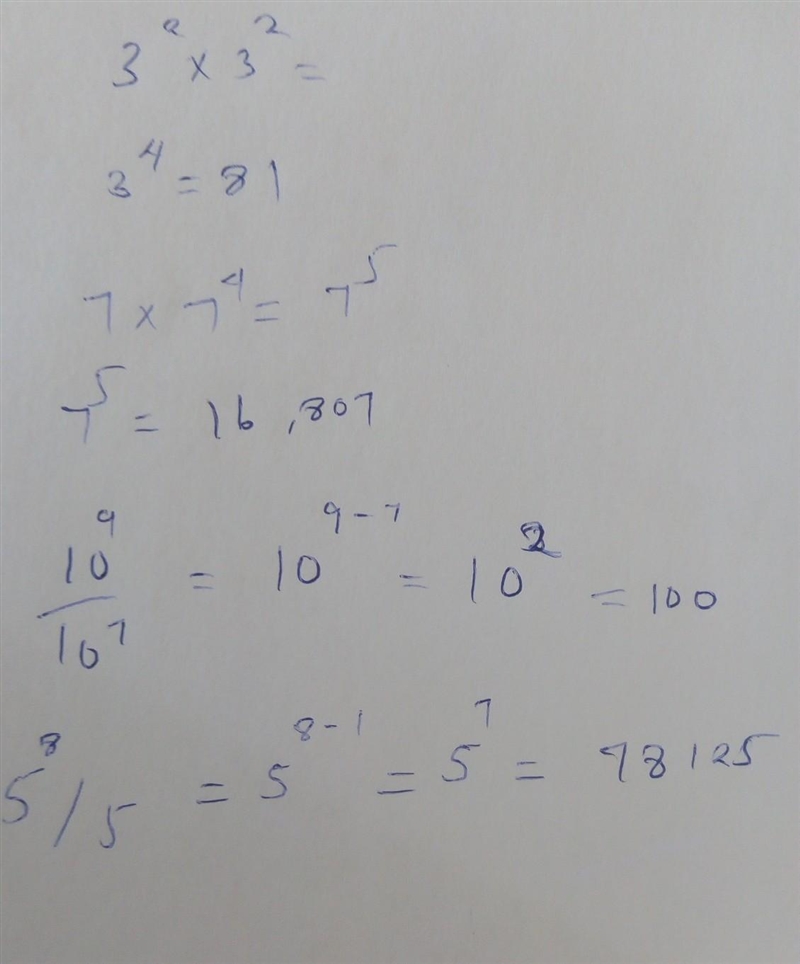 3² × 3² =
3⁴ = 81
7 × 7⁴ = 7⁵
7⁵ = 16,807
10⁹/10⁷ = 10⁹⁻⁷ = 10² = 100
5⁸/5 = 5⁸⁻¹ = 5⁷ = 78125